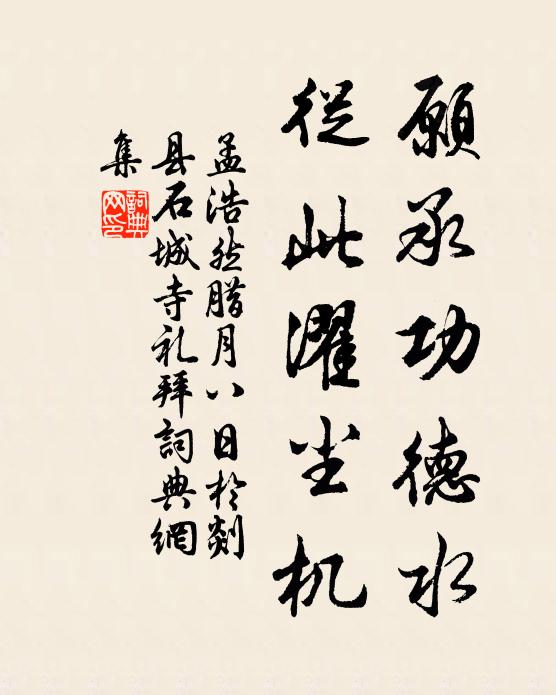 願承功德水
從此濯尘机
孟浩然腊月八日於剡
县石城寺礼拜詞典網
集
詞典网印